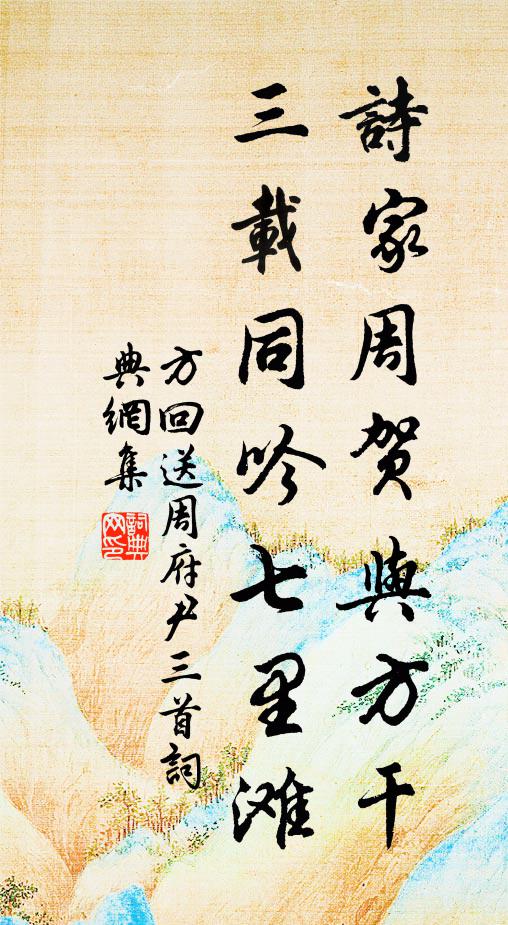 詩家周贺與方干
三載同吟七里滩
方回送周府尹三首詞
典網集
詞典網印